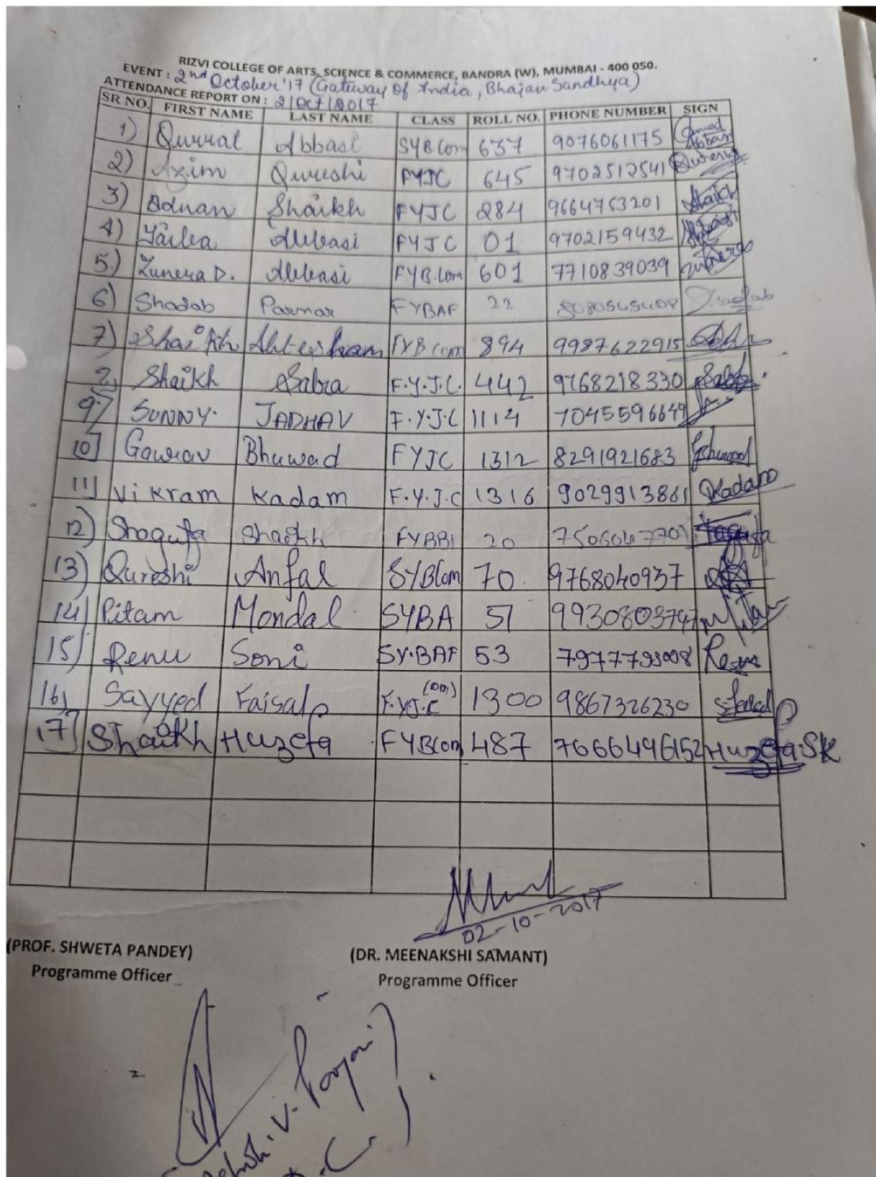 RIZVI COLLEGE OF ARTS, SCIENCE & COMMERCE, BANDRA (W), MUMBAI - 400 050.
EVENT : 2nd October'17 (Gateway Of India, Bhajan Sandhya)
ATTENDANCE REPORT ON : 2/Oct/2017
SR NO. FIRST NAME LAST NAME CLASS ROLL NO. PHONE NUMBER SIGN
1) Qurrat Abbasi SYBCom 637 9076061175
2) Azim Qureshi FYJC 645 9702512541 Qureshi
3) Adnan Shaikh FYJC 284 9664753201 Shaikh
4) Abbasi FYJC 01 9702159432
5.) Zunera D. Abbasi FYB.Com 601 7710839039 Zunera
6) Shadab Parmar FYBAF 22 Shadab
7) Shaikh Ahtesham FYBCom 894 9987622915
Shaikh Sabra F.Y.J.C. 442 9768218330
9) SUNNY. JADHAV F.Y.J.C 1114 7045596649
10] Gaurav Bhuwad FYJC 1312 8291921683
11] Vikram Kadam F.Y.J.C 1316 9029913861 Kadam
12) Shagufa Shaikh FYBBI 20
13) Qureshi Anfal SYBCom 70 9768040937
14) Pitam Mondal SYBA 51 9930803747
15) Renu Soni SY.BAF 53 Renu
16) Sayyed Faisal F.YJ.C (com) 1300 9867326230
17] Shaikh Huzefa FYBCom 487 7666496152 Huzefa.SK
02-10-2017
(PROF. SHWETA PANDEY) (DR. MEENAKSHI SAMANT)
Programme Officer Programme Officer